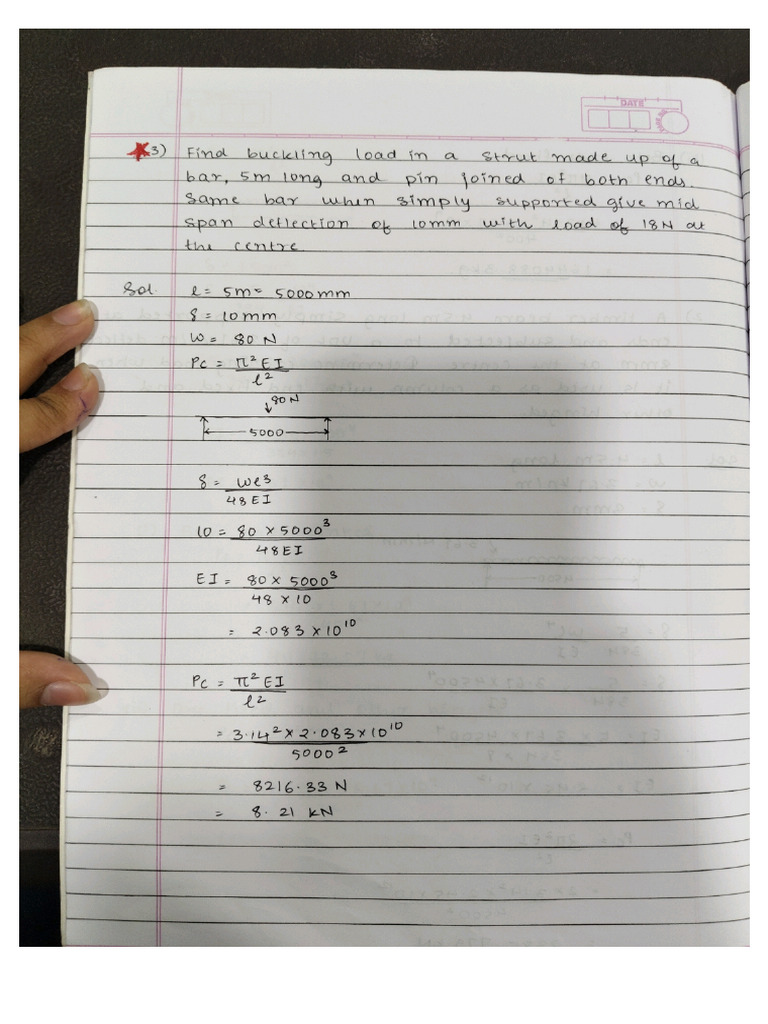 DATE
3) Find buckling load in a strut made up of a
bar, 5m long and pin joined of both ends.
Same bar when simply supported give mid
span deflection of 10mm with load of 18N at
the centre
Sol. l = 5m = 5000mm
δ = 10mm
W = 80 N
Pc = π² EI / l²
↓80N
5000
δ = Wl³ / 48EI
10 = 80 × 5000³ / 48EI
EI = 80 × 5000³ / 48 × 10
= 2.083 × 10¹⁰
Pc = π² EI / l²
= 3.14² × 2.083 × 10¹⁰ / 5000²
= 8216.33 N
= 8.21 KN